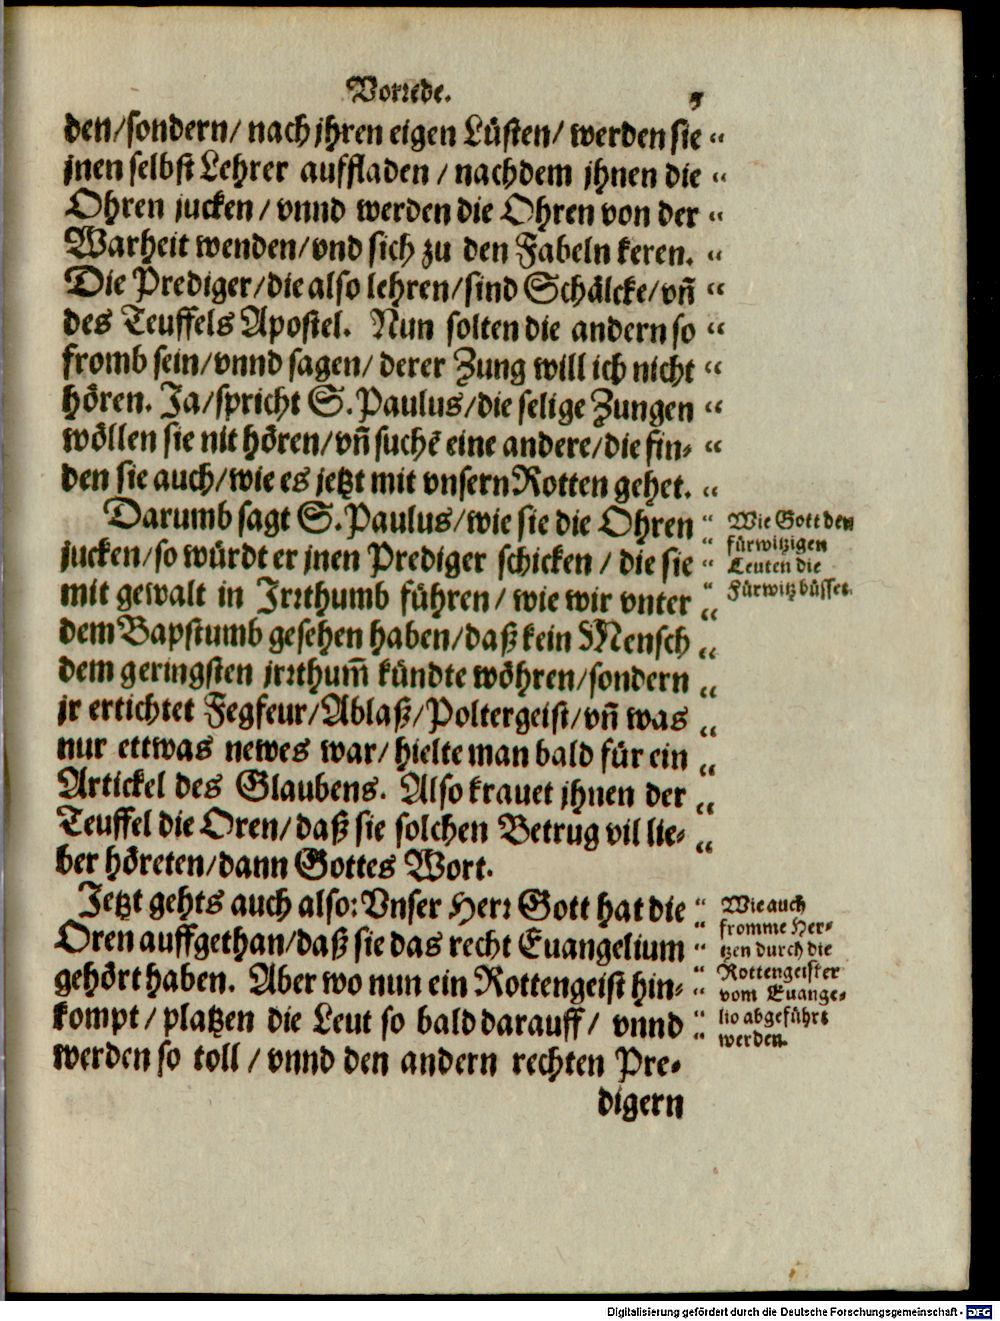 Vorrede. 5
den/sondern/ nach jhren eigen Lüsten/ werden sie “
jnen selbst Lehrer auffladen / nachdem jhnen die “
Ohren jucken / vnnd werden die Ohren von der “
Warheit wenden/vnd sich zu den Fabeln keren. “
Die Prediger/die also lehren/sind Schälcke/vñ “
des Teuffels Apostel. Nun solten die andern so “
fromb sein/vnnd sagen/ derer Zung will ich nicht “
hören. Ja/spricht S. Paulus/die selige Zungen “
wöllen sie nit hören/vñ suchē eine andere/die fin- “
den sie auch/wie es jetzt mit vnsern Rotten gehet. “
Darumb sagt S. Paulus/wie sie die Ohren “
jucken/so würdt er jnen Prediger schicken / die sie “
mit gewalt in Irrthumb führen/ wie wir vnter “
dem Bapstumb gesehen haben/daß kein Mensch “
dem geringsten jrrthum̃ kündte wöhren/sondern “
jr ertichtet Fegfeur/Ablaß/Poltergeist/vñ was “
nur ettwas newes war/ hielte man bald für ein “
Artickel des Glaubens. Also krauet jhnen der “
Teuffel die Oren/daß sie solchen Betrug vil lie- “
ber höreten/dann Gottes Wort.
Wie Gott den
fürwitzigen
Leuten die
Fürwitz büsset.
Jetzt gehts auch also: Vnser Herr Gott hat die “
Oren auffgethan/daß sie das recht Euangelium “
gehört haben. Aber wo nun ein Rottengeist hin- “
kompt / platzen die Leut so bald darauff / vnnd “
werden so toll / vnnd den andern rechten Pre-
digern
Wie auch
fromme Her-
tzen durch die
Rottengeister
vom Euange-
lio abgeführt
werden.
Digitalisierung gefördert durch die Deutsche Forschungsgemeinschaft - DFG